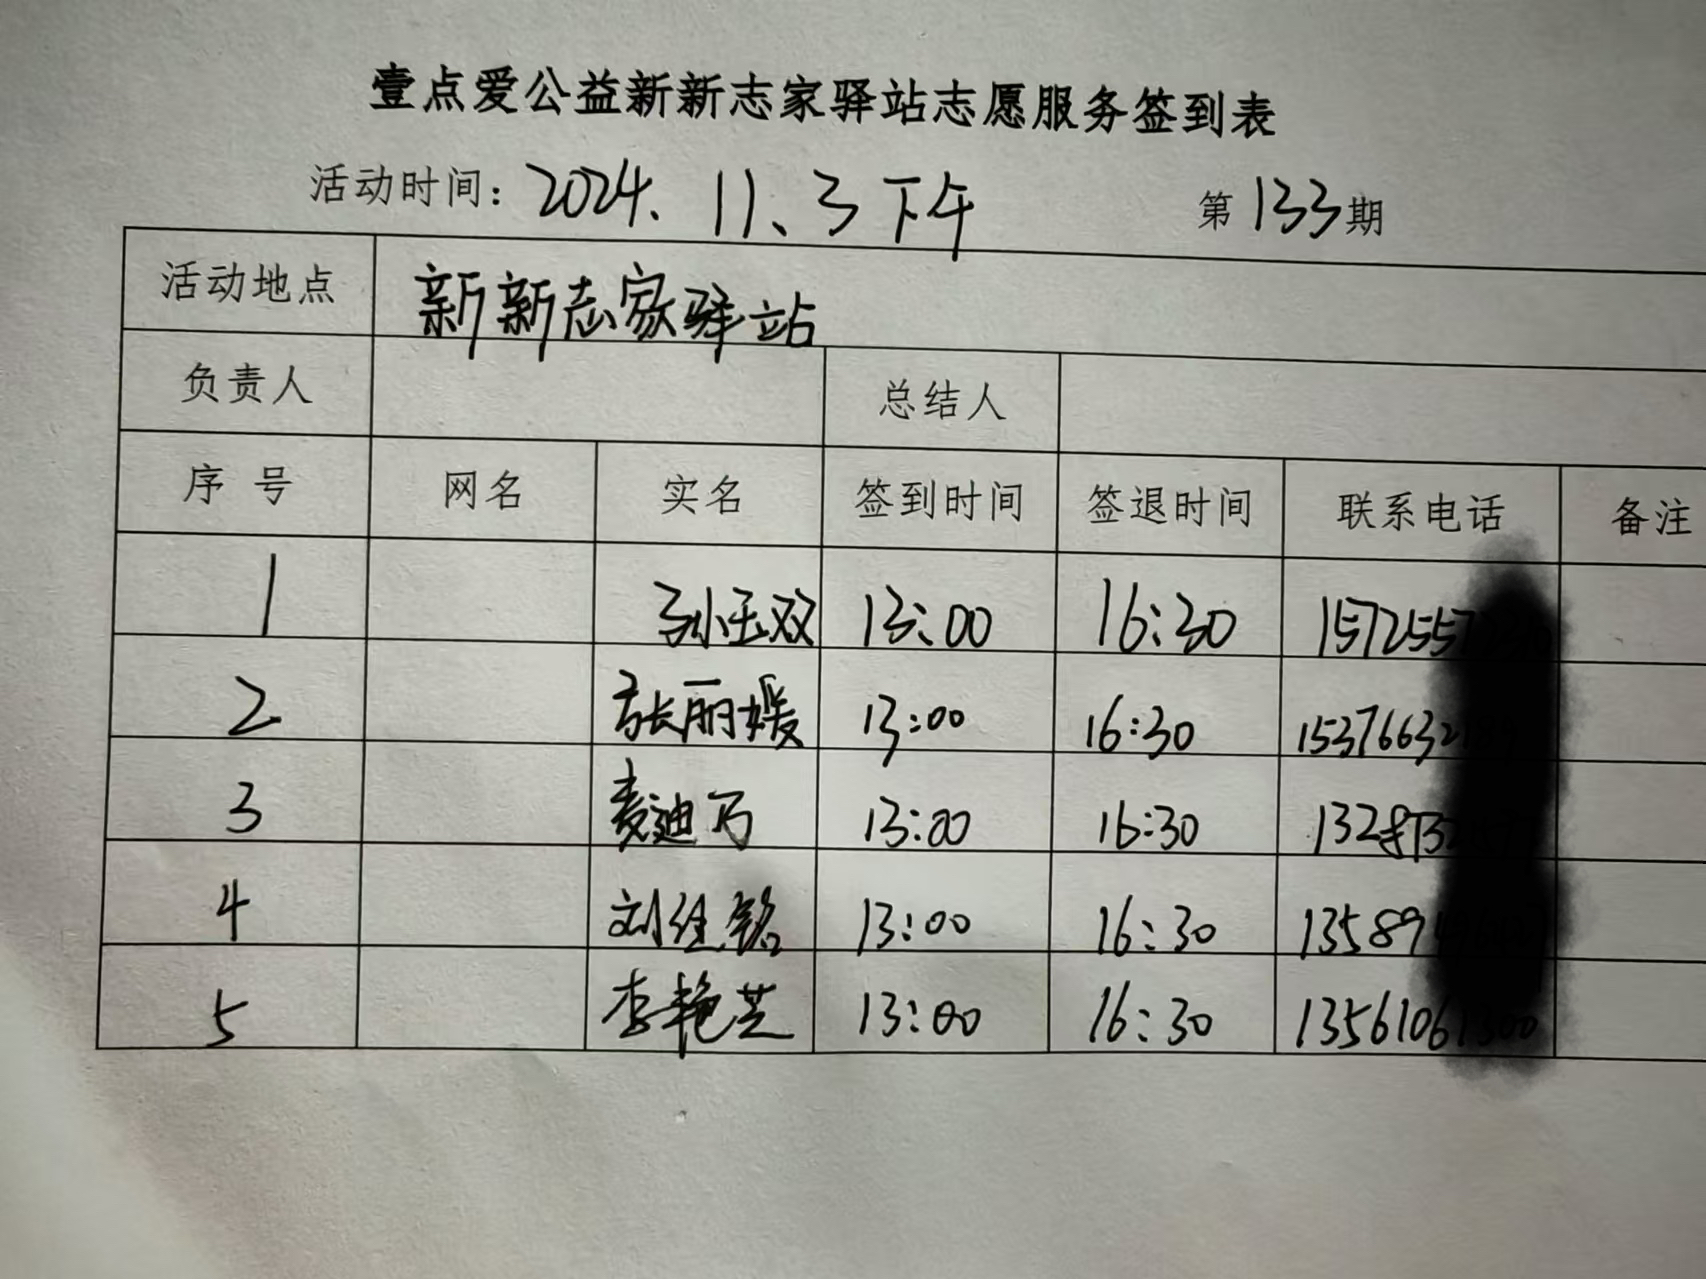 壹点爱公益新新志家驿站志愿服务签到表
活动时间: 2024. 11、3下午 第133期
活动地点 新新志家驿站
负责人 总结人
序号 网名 实名 签到时间 签退时间 联系电话 备注
1 孙玉双 13:00 16:30 1572557
2 张丽媛 13:00 16:30 15376632
3 麦迪乃 13:00 16:30 1328732
4 刘经铭 13:00 16:30 135894
5 李艳芝 13:00 16:30 13561061